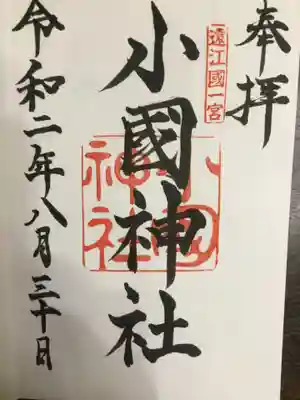 奉拝
遠江國一宮
小國神社
小國神社
令和二年八月三十日